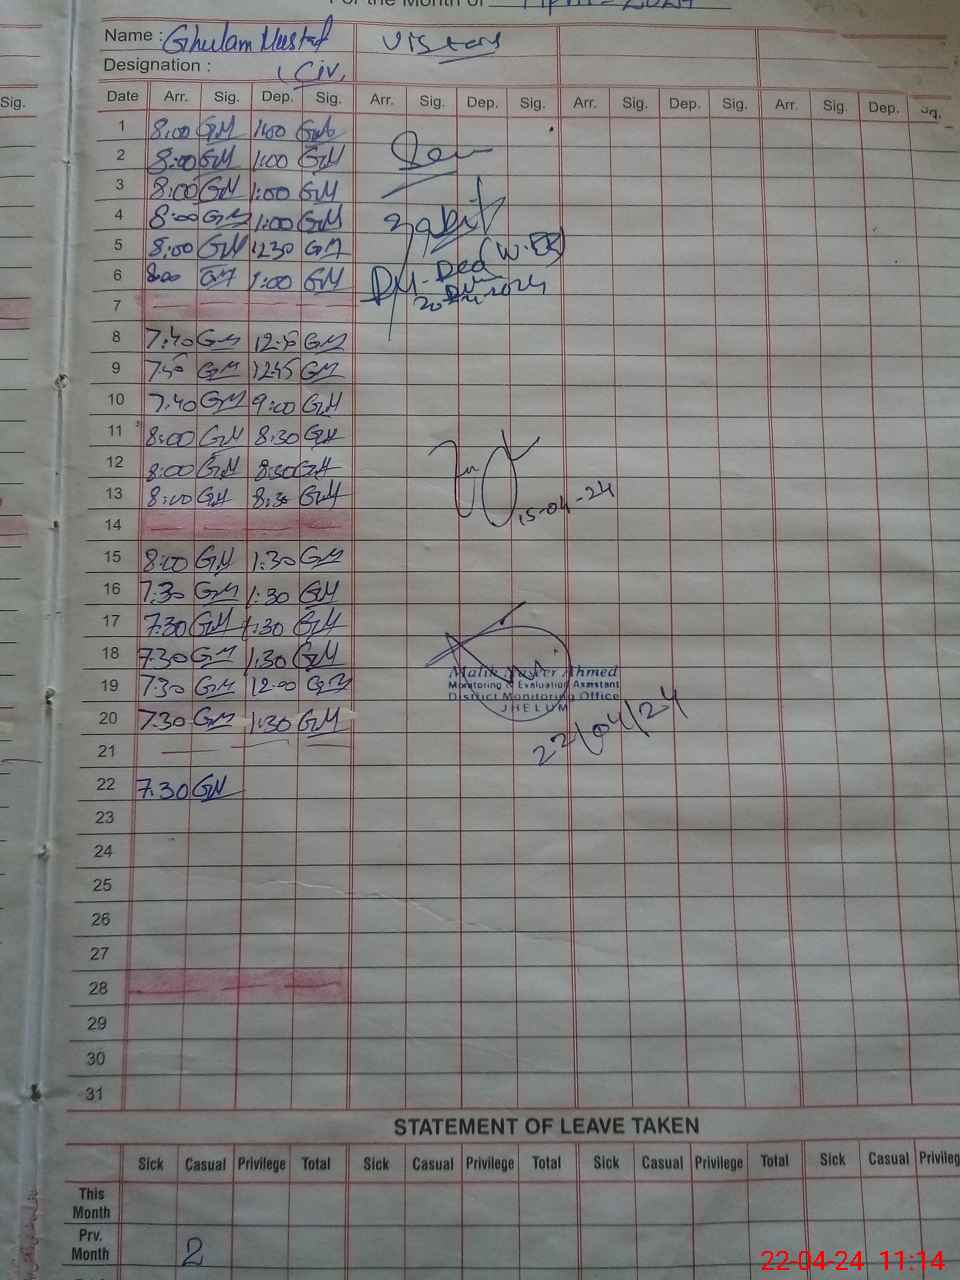 For the Month of April - 2024
Name : Ghulam Mustaf Vistors
Designation : (Civ)
Sig.
Date Arr. Sig. Dep. Sig. Arr. Sig. Dep. Sig. Arr. Sig. Dep. Sig. Arr. Sig. Dep. Sig.
1 8:00 GM 1:00 GM
2 8:00 GM 1:00 GM
3 8:00 GM 1:00 GM
4 8:00 GM 1:00 GM
5 8:00 GM 12:30 GM
6 8:00 GM 1:00 GM
7
8 7:40 GM GM
9 GM 12:45 GM
10 7:40 GM 9:00 GM
11 8:00 GM 8:30 GM
12 8:00 GM 8:30 GM
13 8:00 GM 8:30 GM
15-04-24
14
15 8:00 GM 1:30 GM
16 7:30 GM 1:30 GM
17 7:30 GM 1:30 GM
18 7:30 GM 1:30 GM
Malik Ahmed
Monitoring & Evaluation Assistant
District Monitoring Office
JHELUM
19 7:30 GM 12:00 GM
20 7:30 GM 1:30 GM
22/04/24
21
22 7:30 GM
23
24
25
26
27
28
29
30
31
STATEMENT OF LEAVE TAKEN
Sick Casual Privilege Total Sick Casual Privilege Total Sick Casual Privilege Total Sick Casual Privileg
This
Month
Prv.
Month 2
22-04-24 11:14